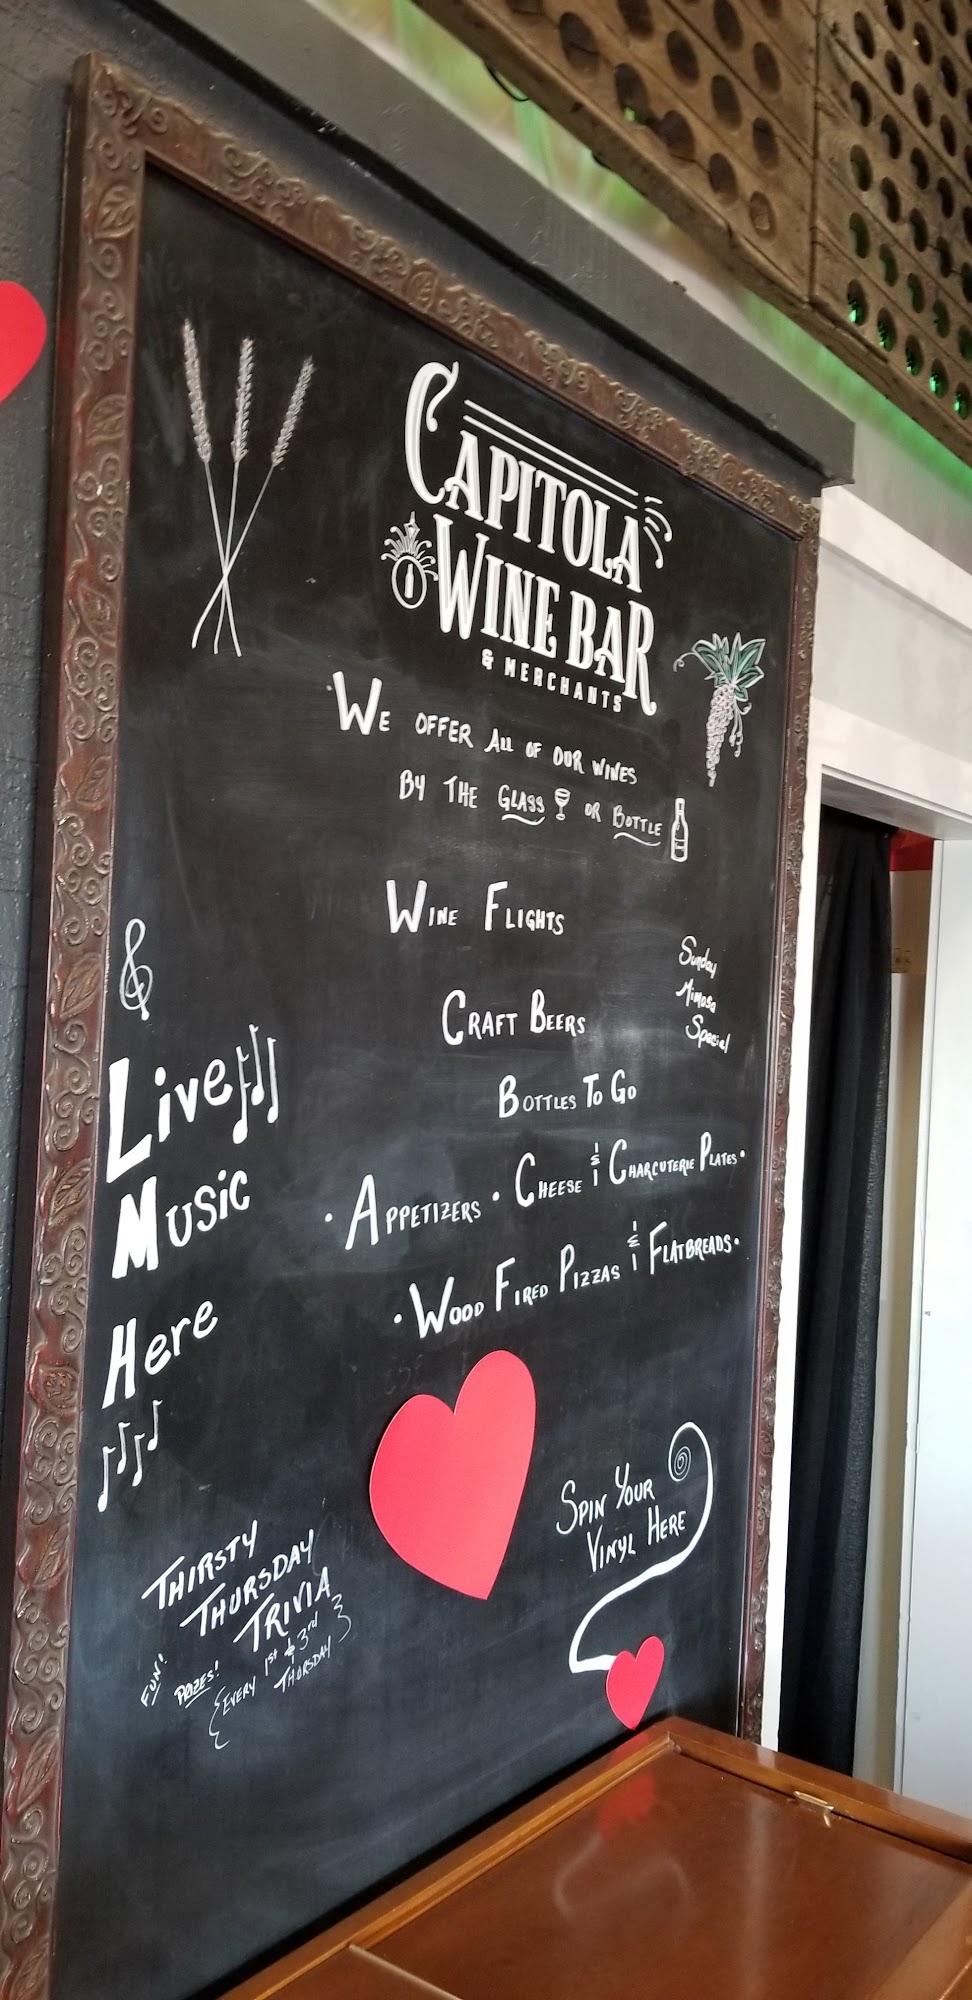 CAPITOLA
WINE BAR
& MERCHANTS
WE OFFER ALL OF OUR WINES
BY THE GLASS OR BOTTLE
WINE FLIGHTS
Sunday
Mimosa
Special
CRAFT BEERS
BOTTLES TO GO
• APPETIZERS • CHEESE & CHARCUTERIE PLATES •
• WOOD FIRED PIZZAS & FLATBREADS •
Live
Music
Here
SPIN YOUR
VINYL HERE
THIRSTY
THURSDAY
TRIVIA
FUN!
PRIZES!
{EVERY 1st & 3rd
THURSDAY}